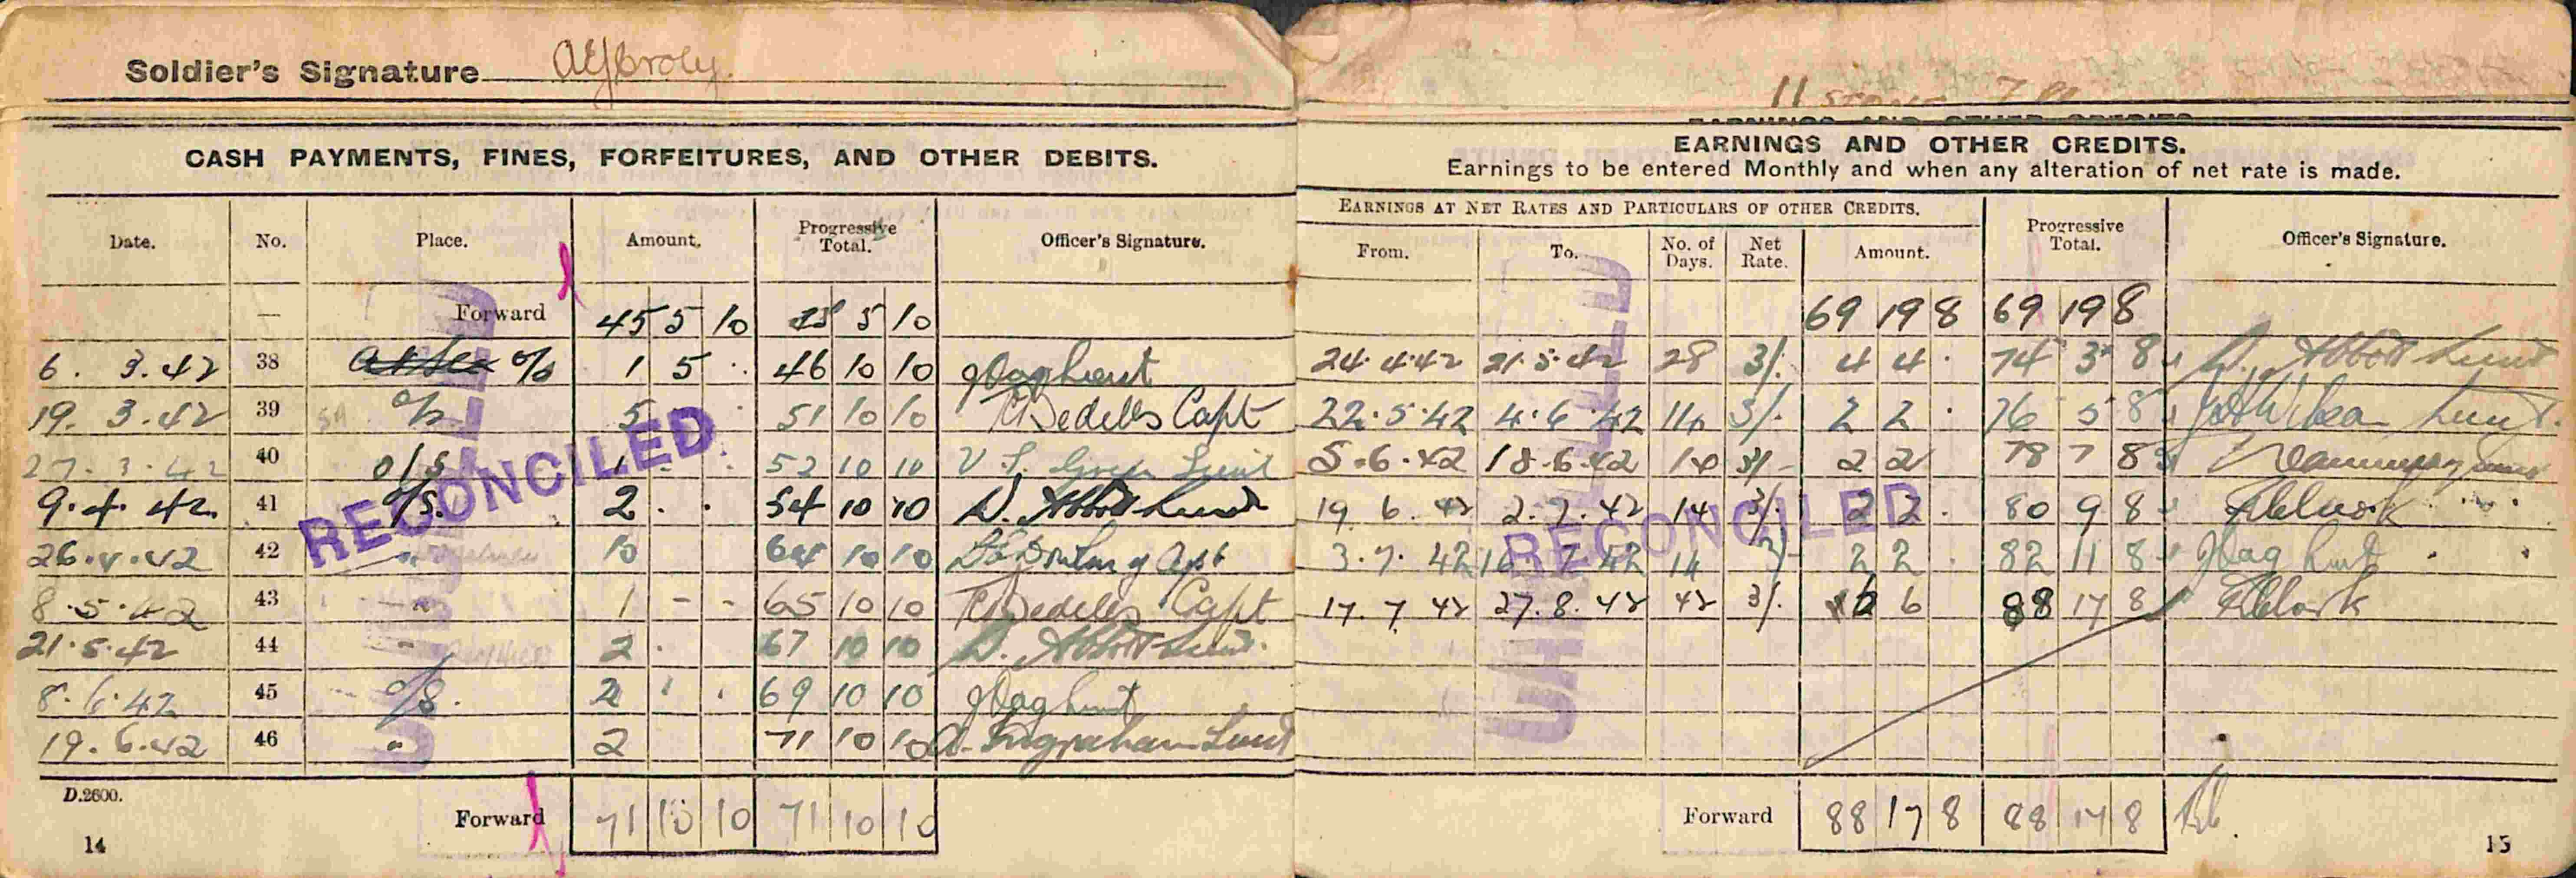 Soldier's Signature
CASH PAYMENTS, FINES, FORFEITURES, AND OTHER DEBITS.
Date. No. Place. Amount. Progressive Total. Officer's Signature.
— Forward 45 5 10 45 5 10
6. 3.42 38 at sea o/s 1 5 46 10 10
19. 3.42 39 o/s 5 51 10 10 Bedells Capt
27.3.42 40 o/s 1 52 10 10 V. S. Green Lieut
9.4.42. 41 o/s. 2 . . 54 10 10 D. Abbott Lieut
26.4.42 42 " 10 64 10 10 Capt
8.5.42 43 " 1 - - 65 10 10 Bedells Capt
21.5.42 44 " 2 . 67 10 10 D. Abbott Lieut.
8.6.42 45 o/s. 2 69 10 10
19.6.42 46 " 2 71 10 10 A. Ingraham Lieut
RECONCILED
D.2600.
Forward 71 10 10 71 10 10
14
11 STONE 7
EARNINGS AND OTHER CREDITS.
Earnings to be entered Monthly and when any alteration of net rate is made.
EARNINGS AT NET RATES AND PARTICULARS OF OTHER CREDITS.
From. To. No. of Days. Net Rate. Amount. Progressive Total. Officer's Signature.
69 19 8 69 19 8
24.4.42 21.5.42 28 3/. 4 4 . 74 3 8 D. Abbott Lieut
22.5.42 4.6.42 14 3/. 2 2 . 76 5 8 Lieut.
5.6.42 18.6.42 14 3/- 2 2 78 7 8
19. 6. 42 2.7.42 14 3/. 2 2 . 80 9 8
3.7.42 16.7.42 14 3/- 2 2 82 11 8
17.7.42 27.8.42 42 3/. 6 6 88 17 8
RECONCILED
Forward 88 17 8 88 17 8
15